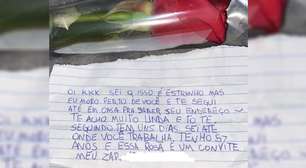 OI KKK SEI Q ISSO É ESTRANHO MAS
EU MORO PERTO DE VOCÊ E TE SEGUI
ATÉ EM CASA PRA SABER SEU ENDEREÇO
TE ACHO MUITO LINDA E TO TE
SEGUINDO TEM UNS DIAS, SEI ATE
ONDE VOCÊ TRABALHA, TENHO 57
ANOS E ESSA ROSA É UM CONVITE
MEU ZAP